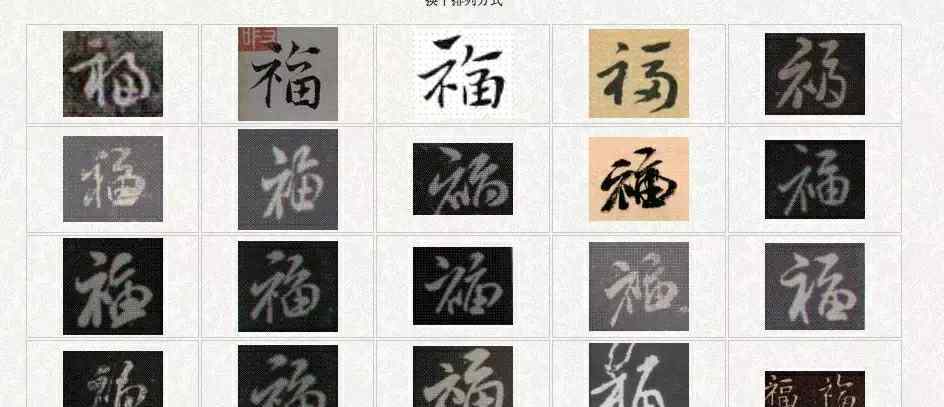 换个排列方式
福 福 福 福 福
福 福 福 福 福
福 福 福 福 福
福 福 福 福 福 福